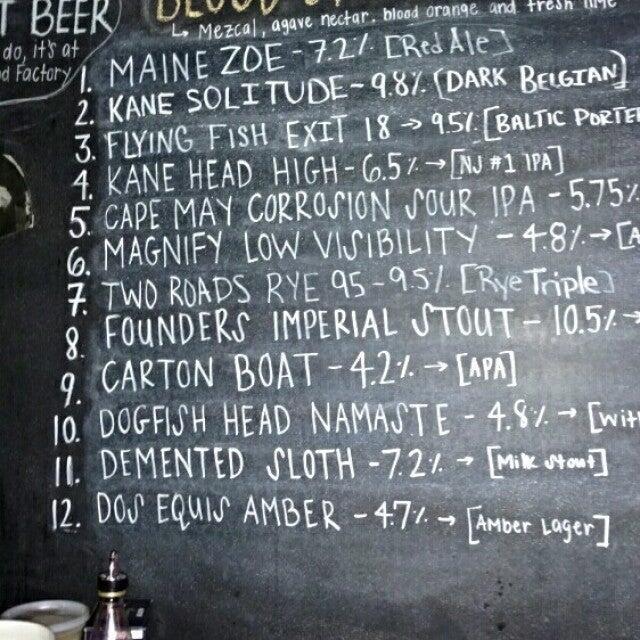 T BEER
do, it's at
d Factory
BLOOD
↳ Mezcal, agave nectar, blood orange and fresh lime
1. MAINE ZOE - 7.2% [Red Ale]
2. KANE SOLITUDE - 9.8% [DARK BELGIAN]
3. FLYING FISH EXIT 18 → 9.5% [BALTIC PORTE
4. KANE HEAD HIGH - 6.5% → [NJ #1 IPA]
5. CAPE MAY CORROSION SOUR IPA - 5.75%
6. MAGNIFY LOW VISIBILITY - 4.8% → [A
7. TWO ROADS RYE 95 - 9.5% [Rye Triple]
8. FOUNDERS IMPERIAL STOUT - 10.5% →
9. CARTON BOAT - 4.2% → [APA]
10. DOGFISH HEAD NAMASTE - 4.8% → [Wit
11. DEMENTED SLOTH - 7.2% → [Milk Stout]
12. DOS EQUIS AMBER - 4.7% → [Amber Lager]